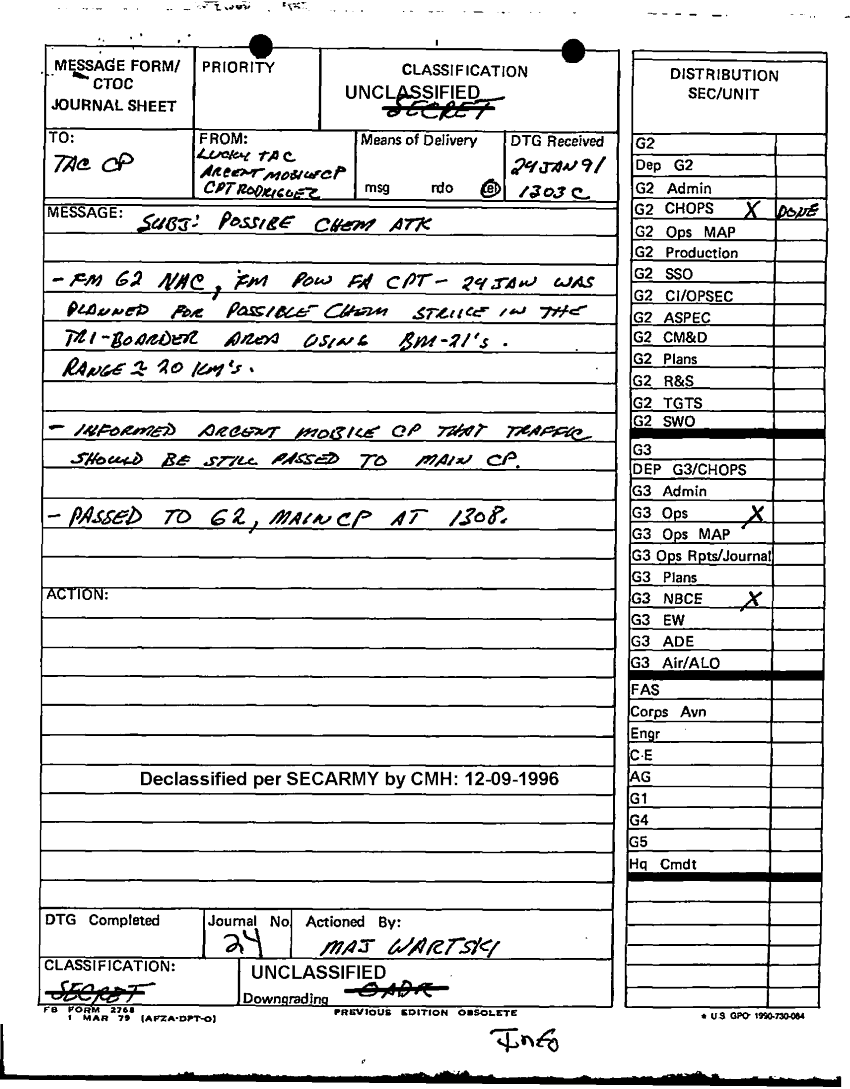 MESSAGE FORM/
CTOC
JOURNAL SHEET
PRIORITY
CLASSIFICATION
UNCLASSIFIED
SECRET
TO:
TAC CP
FROM:
LUCKY TAC
ARCENT MOBILE CP
CPT RODRIGUEZ
Means of Delivery
msg rdo tel
DTG Received
24 JAN 91
1303 C
MESSAGE: SUBJ: POSSIBE CHEM ATK
- FM G2 NAC, FM POW FA CPT - 24 JAN WAS
PLANNED FOR POSSIBLE CHEM STRIKE IN THE
TRI-BOARDER AREA USING BM-21's.
RANGE ≥ 20 KM's.
- INFORMED ARCENT MOBILE CP THAT TRAFFIC
SHOULD BE STILL PASSED TO MAIN CP.
- PASSED TO G2, MAIN CP AT 1308.
ACTION:
Declassified per SECARMY by CMH: 12-09-1996
DTG Completed
Journal No.
24
Actioned By:
MAJ WARTSKI
CLASSIFICATION:
SECRET
UNCLASSIFIED
Downgrading OADR
FB FORM 2768
1 MAR 79 (AFZA-DPT-O)
PREVIOUS EDITION OBSOLETE
Info
DISTRIBUTION
SEC/UNIT
G2
Dep G2
G2 Admin
G2 CHOPS X DONE
G2 Ops MAP
G2 Production
G2 SSO
G2 CI/OPSEC
G2 ASPEC
G2 CM&D
G2 Plans
G2 R&S
G2 TGTS
G2 SWO
G3
DEP G3/CHOPS
G3 Admin
G3 Ops X
G3 Ops MAP
G3 Ops Rpts/Journal
G3 Plans
G3 NBCE X
G3 EW
G3 ADE
G3 Air/ALO
FAS
Corps Avn
Engr
C-E
AG
G1
G4
G5
Hq Cmdt
★ U.S GPO: 1990-730-084